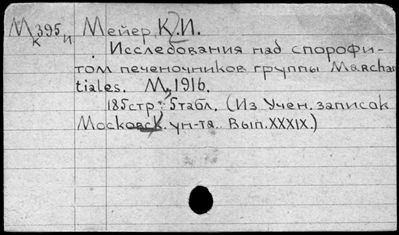 М 395 и Мейер К.И.
к
Исследования над спорофи-
том печеночников группы Marchan
tiales. М., 1916.
185стр. 5табл. (Из Учен. записок
Московск. ун-та. Вып.XXXIX.)